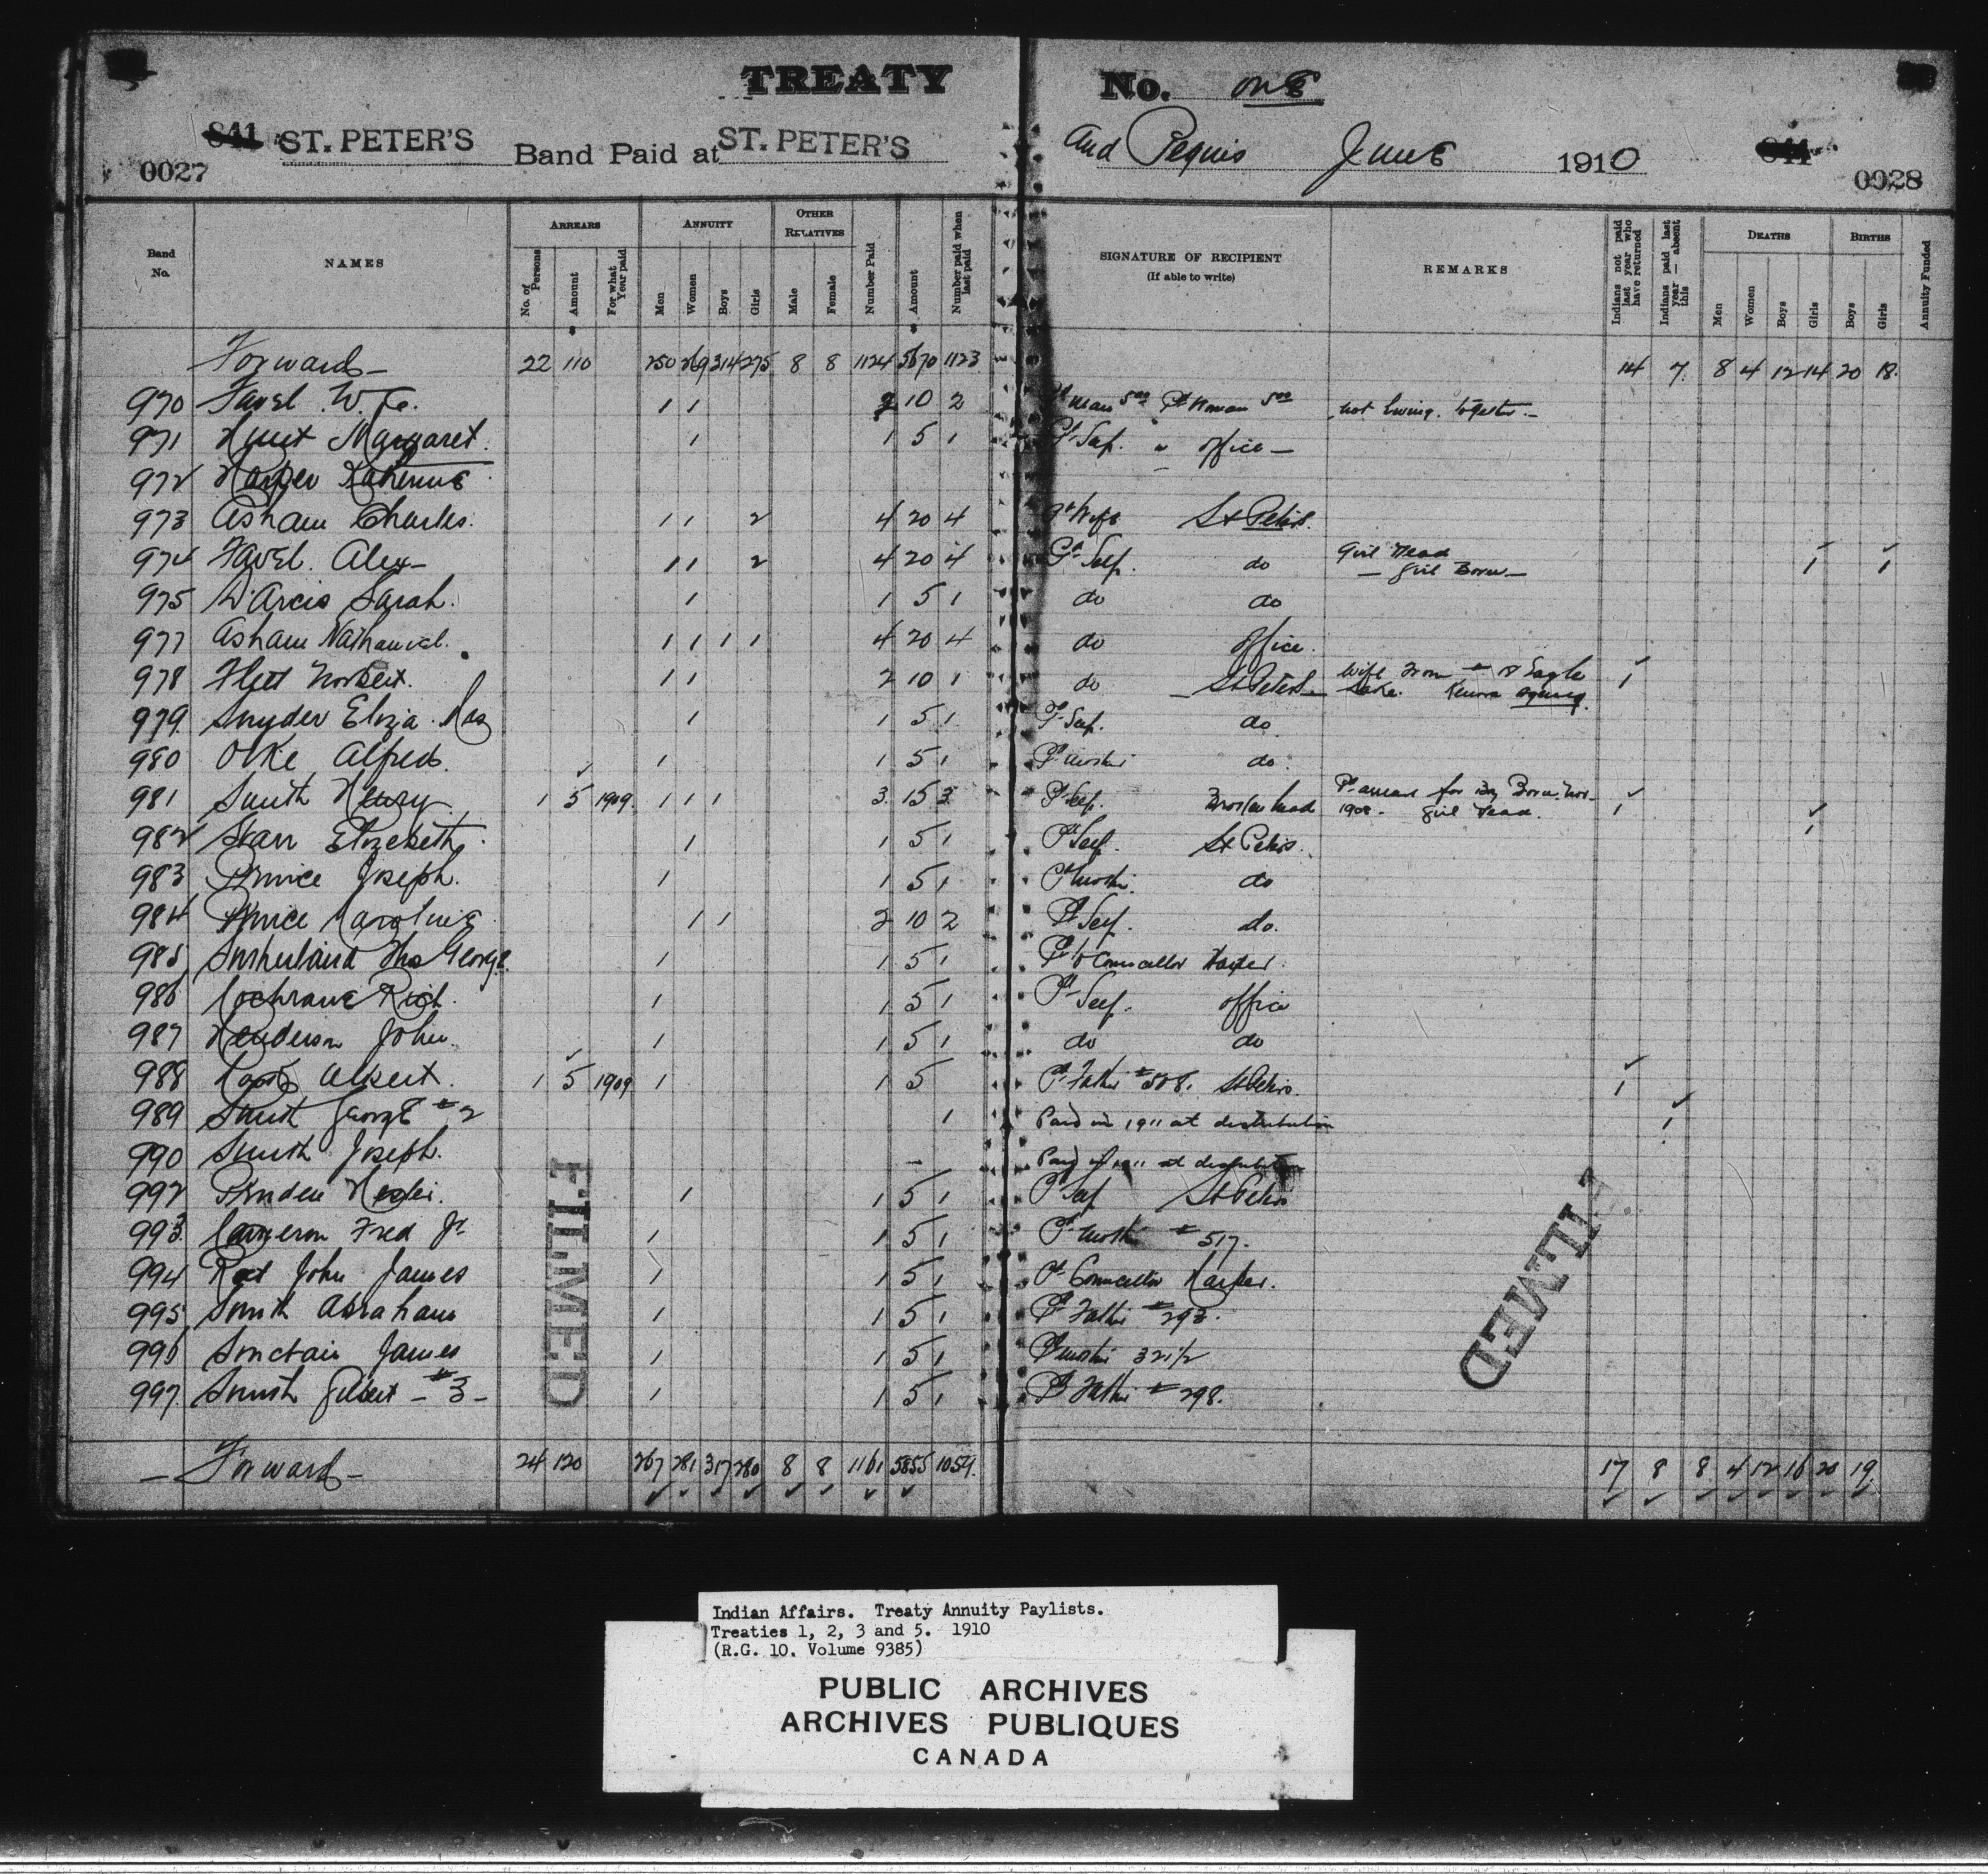 TREATY No. one
841 ST. PETER'S Band Paid at ST. PETER'S And Peguis June 1910 841
0027 0028
Band No. NAMES ARREARS ANNUITY OTHER RELATIVES Number Paid Amount Number paid when last paid SIGNATURE OF RECIPIENT (If able to write) REMARKS Indians not paid last year who have returned Indians paid last year — absent this DEATHS BIRTHS Annuity Funded
No. of Persons Amount For what Year paid Men Women Boys Girls Male Female Men Women Boys Girls Boys Girls
Forward 22 110 250 269 314 275 8 8 1124 5670 1123 14 7 8 4 12 14 20 18
970 Favel W. 1 1 2 10 2 Pd man 5.00 Pd Woman 5.00 not living together
971 Margaret 1 1 5 1 Pd Self " office
972 Harper
973 Asham Charles 1 1 2 4 20 4 Pd Wife St Peters
974 Favel Alex 1 1 2 4 20 4 Pd Self do Girl Dead 1 1
— Girl Born —
975 D'Arcis Sarah 1 1 5 1 do do
977 Asham Nathaniel 1 1 1 1 4 20 4 do office
978 Flett Norbert 1 1 2 10 1 do St Peters Wife From # 18 Eagle 1
Lake Kenora Agency
979 Snyder Eliza 1 1 5 1 Pd Self do
980 Alfred 1 1 5 1 Pd Mother do
981 Smith Henry 1 5 1909 1 1 1 3 15 3 Pd Self Brokenhead Pd arrears for Boy Born Nov 1 1
1908 Girl Dead
982 Starr Elizebeth 1 1 5 1 Pd Self St Peters
983 Prince Joseph 1 1 5 1 Pd Mother do
984 Prince Caroline 1 1 2 10 2 Pd Self do
985 Sutherland Thos George 1 1 5 1 Pd to Councellor Harper
986 Cochrane Rich 1 1 5 1 Pd Self office
987 Henderson John 1 1 5 1 do do
988 Albert 1 5 1909 1 1 5 Pd Father #508 St Peters 1
989 Smith George #2 1 Paid in 1911 at distribution 1
990 Smith Joseph — Paid in 1911 at distribution
992 Pruden 1 1 5 1 Pd Self St Peters
993 Cameron Fred Jr 1 1 5 1 Pd Mother #517
994 John James 1 1 5 1 Pd Councellor Harper
995 Smith Abraham 1 1 5 1 Pd Father #293
996 Sinclair James 1 1 5 1 Pd Mother 321/2
997 Smith Gilbert — #3 — 1 1 5 1 Pd Father #298
FILMED FILMED
— Forward — 24 120 267 281 317 280 8 8 1161 5855 1054 17 8 8 4 12 16 20 19
Indian Affairs. Treaty Annuity Paylists.
Treaties 1, 2, 3 and 5. 1910
(R.G. 10. Volume 9385)
PUBLIC ARCHIVES
ARCHIVES PUBLIQUES
CANADA